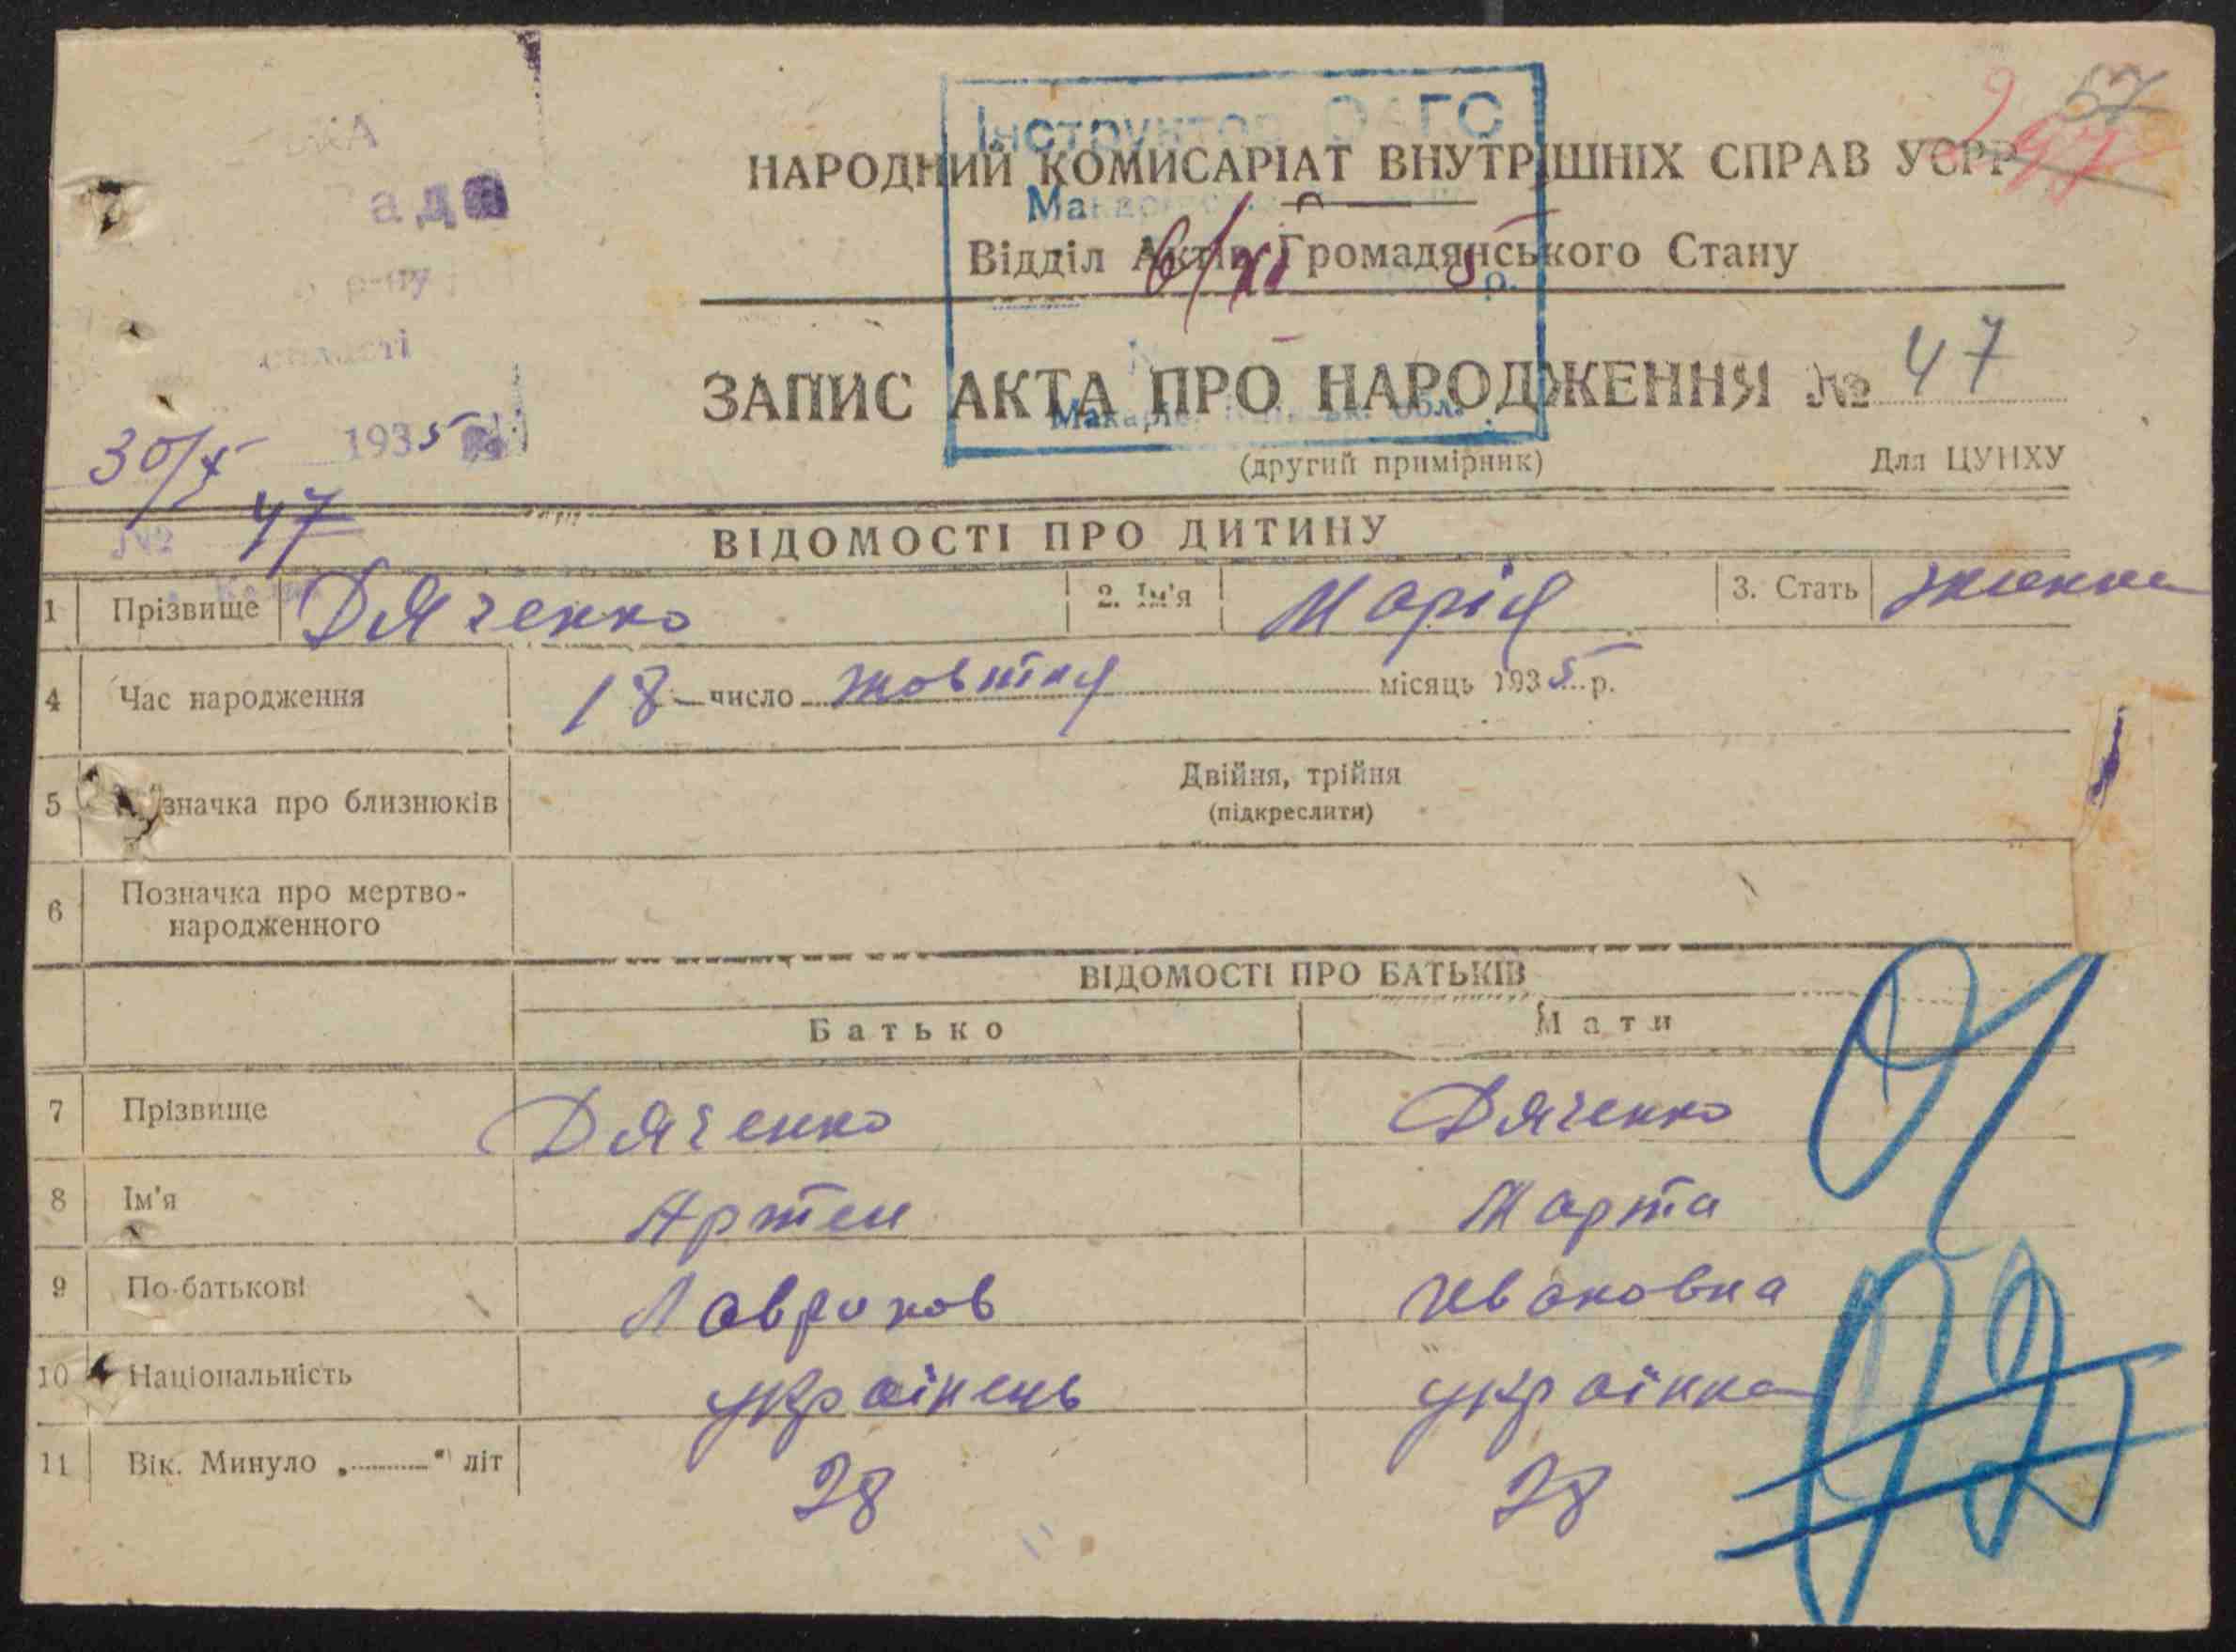 Інструктор ОАГС
57
НАРОДНИЙ КОМИСАРІАТ ВНУТРІШНІХ СПРАВ УСРР
ада
6/XI 5 р.
Відділ Актів Громадянського Стану
р-ну
ЗАПИС АКТА ПРО НАРОДЖЕННЯ № 47
30/X 1935
(другий примірник) Для ЦУНХУ
№ 47
ВІДОМОСТІ ПРО ДИТИНУ
1 Прізвище Дяченко 2. Ім'я Марія 3. Стать
4 Час народження 18 число жовтня місяць 1935 р.
5 значка про близнюків Двійня, трійня
(підкреслити)
6 Позначка про мертво-
народженного
ВІДОМОСТІ ПРО БАТЬКІВ
Батько Мати
7 Прізвище Дяченко Дяченко
8 Ім'я Артем Марта
9 По-батькові Ивановна
10 Національність українець українка
11 Вік. Минуло „ " літ 28 28